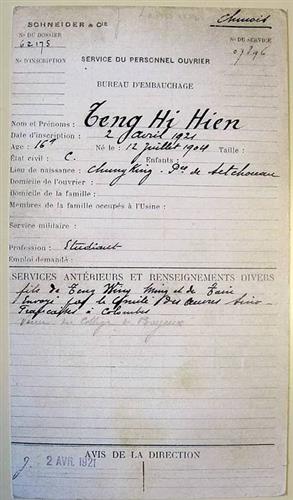 Chinois
SCHNEIDER & CIE
N° DU DOSSIER
62175
N° DU SERVICE
07896
N° D'INSCRIPTION SERVICE DU PERSONNEL OUVRIER
BUREAU D'EMBAUCHAGE
Nom et Prénoms : Teng Hi Hien
Date d'inscription : 2 avril 1921
Age : 16 a Né le : 12 Juillet 1904 Taille :
État civil : C. Enfants :
Lieu de naissance : Chungking Pce de Setchouan
Domicile de l'ouvrier :
Domicile de la famille :
Membres de la famille occupés à l'Usine :
Service militaire :
Profession : Etudiant
Emploi demandé :
SERVICES ANTÉRIEURS ET RENSEIGNEMENTS DIVERS
fils de Teng Wing Ming et de
Envoyé par le Comité des œuvres Sino
Françaises à Colombes
Venu du Collège de
AVIS DE LA DIRECTION
2 AVR. 1921